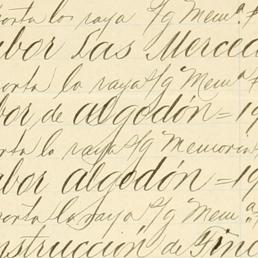 porta la raya S/g Mem.ª
abor Las Merced
porta la raya S/g Mem.ª
abor de algodón = 19
rta la raya S/g Memoria
abor algodón = 19
porta la raya S/g Mem.ª
nstrucción de Finc